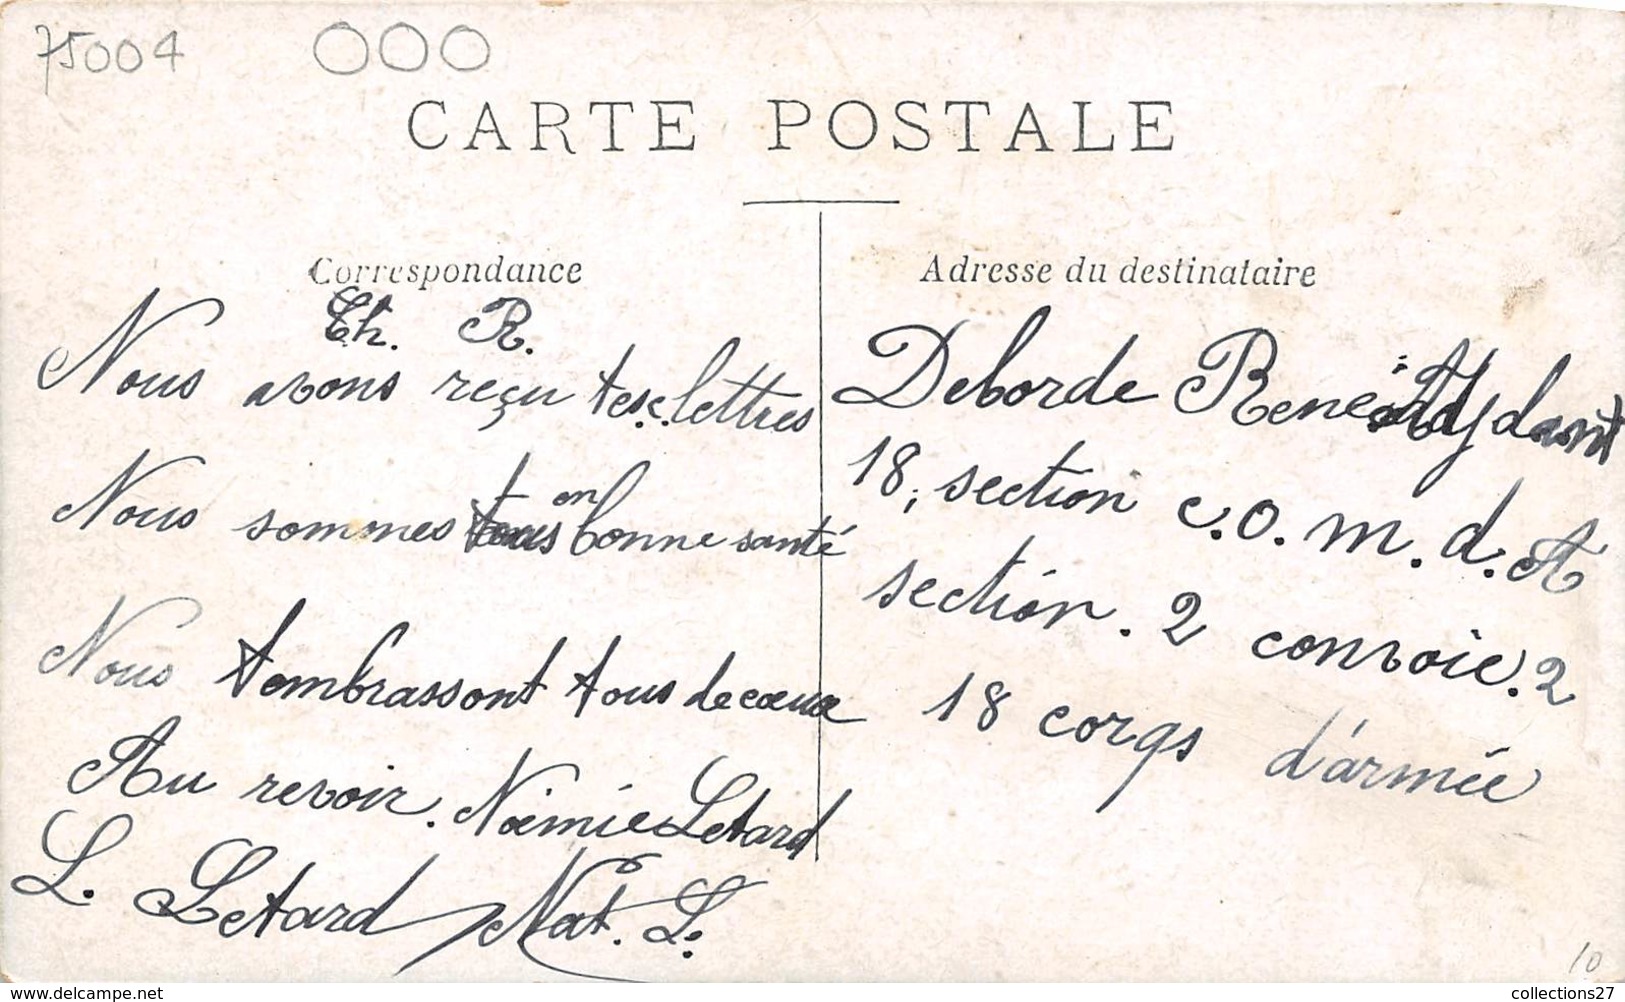 75004 000
CARTE POSTALE
Correspondance
Ch. R.
Nous avons reçu tes lettres
Nous sommes tous en bonne santé
Nous tombrassont tous de cœur
Au revoir. Noémie Letard
L. Letard Nat. L.
Adresse du destinataire
Deborde René
18, section c.o.m.d.A
section. 2 convoie. 2
18 corps d'armée
10
collections27
www.delcampe.net